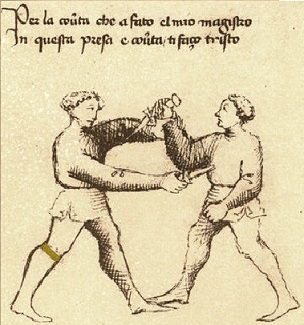 Per la coũta che a fato el mio magistro
In questa presa e coũta, ti faço tristo